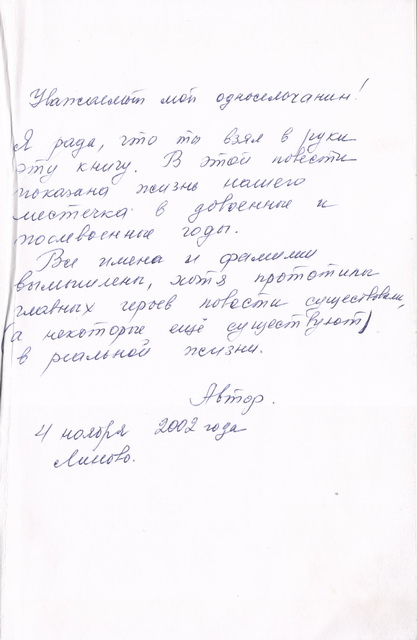 Уважаемый мой односельчанин!
Я рада, что ты взял в руки
эту книгу. В этой повести
показана жизнь нашего
местечка в довоенные и
послевоенные годы.
Все имена и фамилии
вымышлены, хотя прототипы
главных героев повести существовали,
(а некоторые ещё существуют)
в реальной жизни.
Автор.
4 ноября 2002 года
Линово.